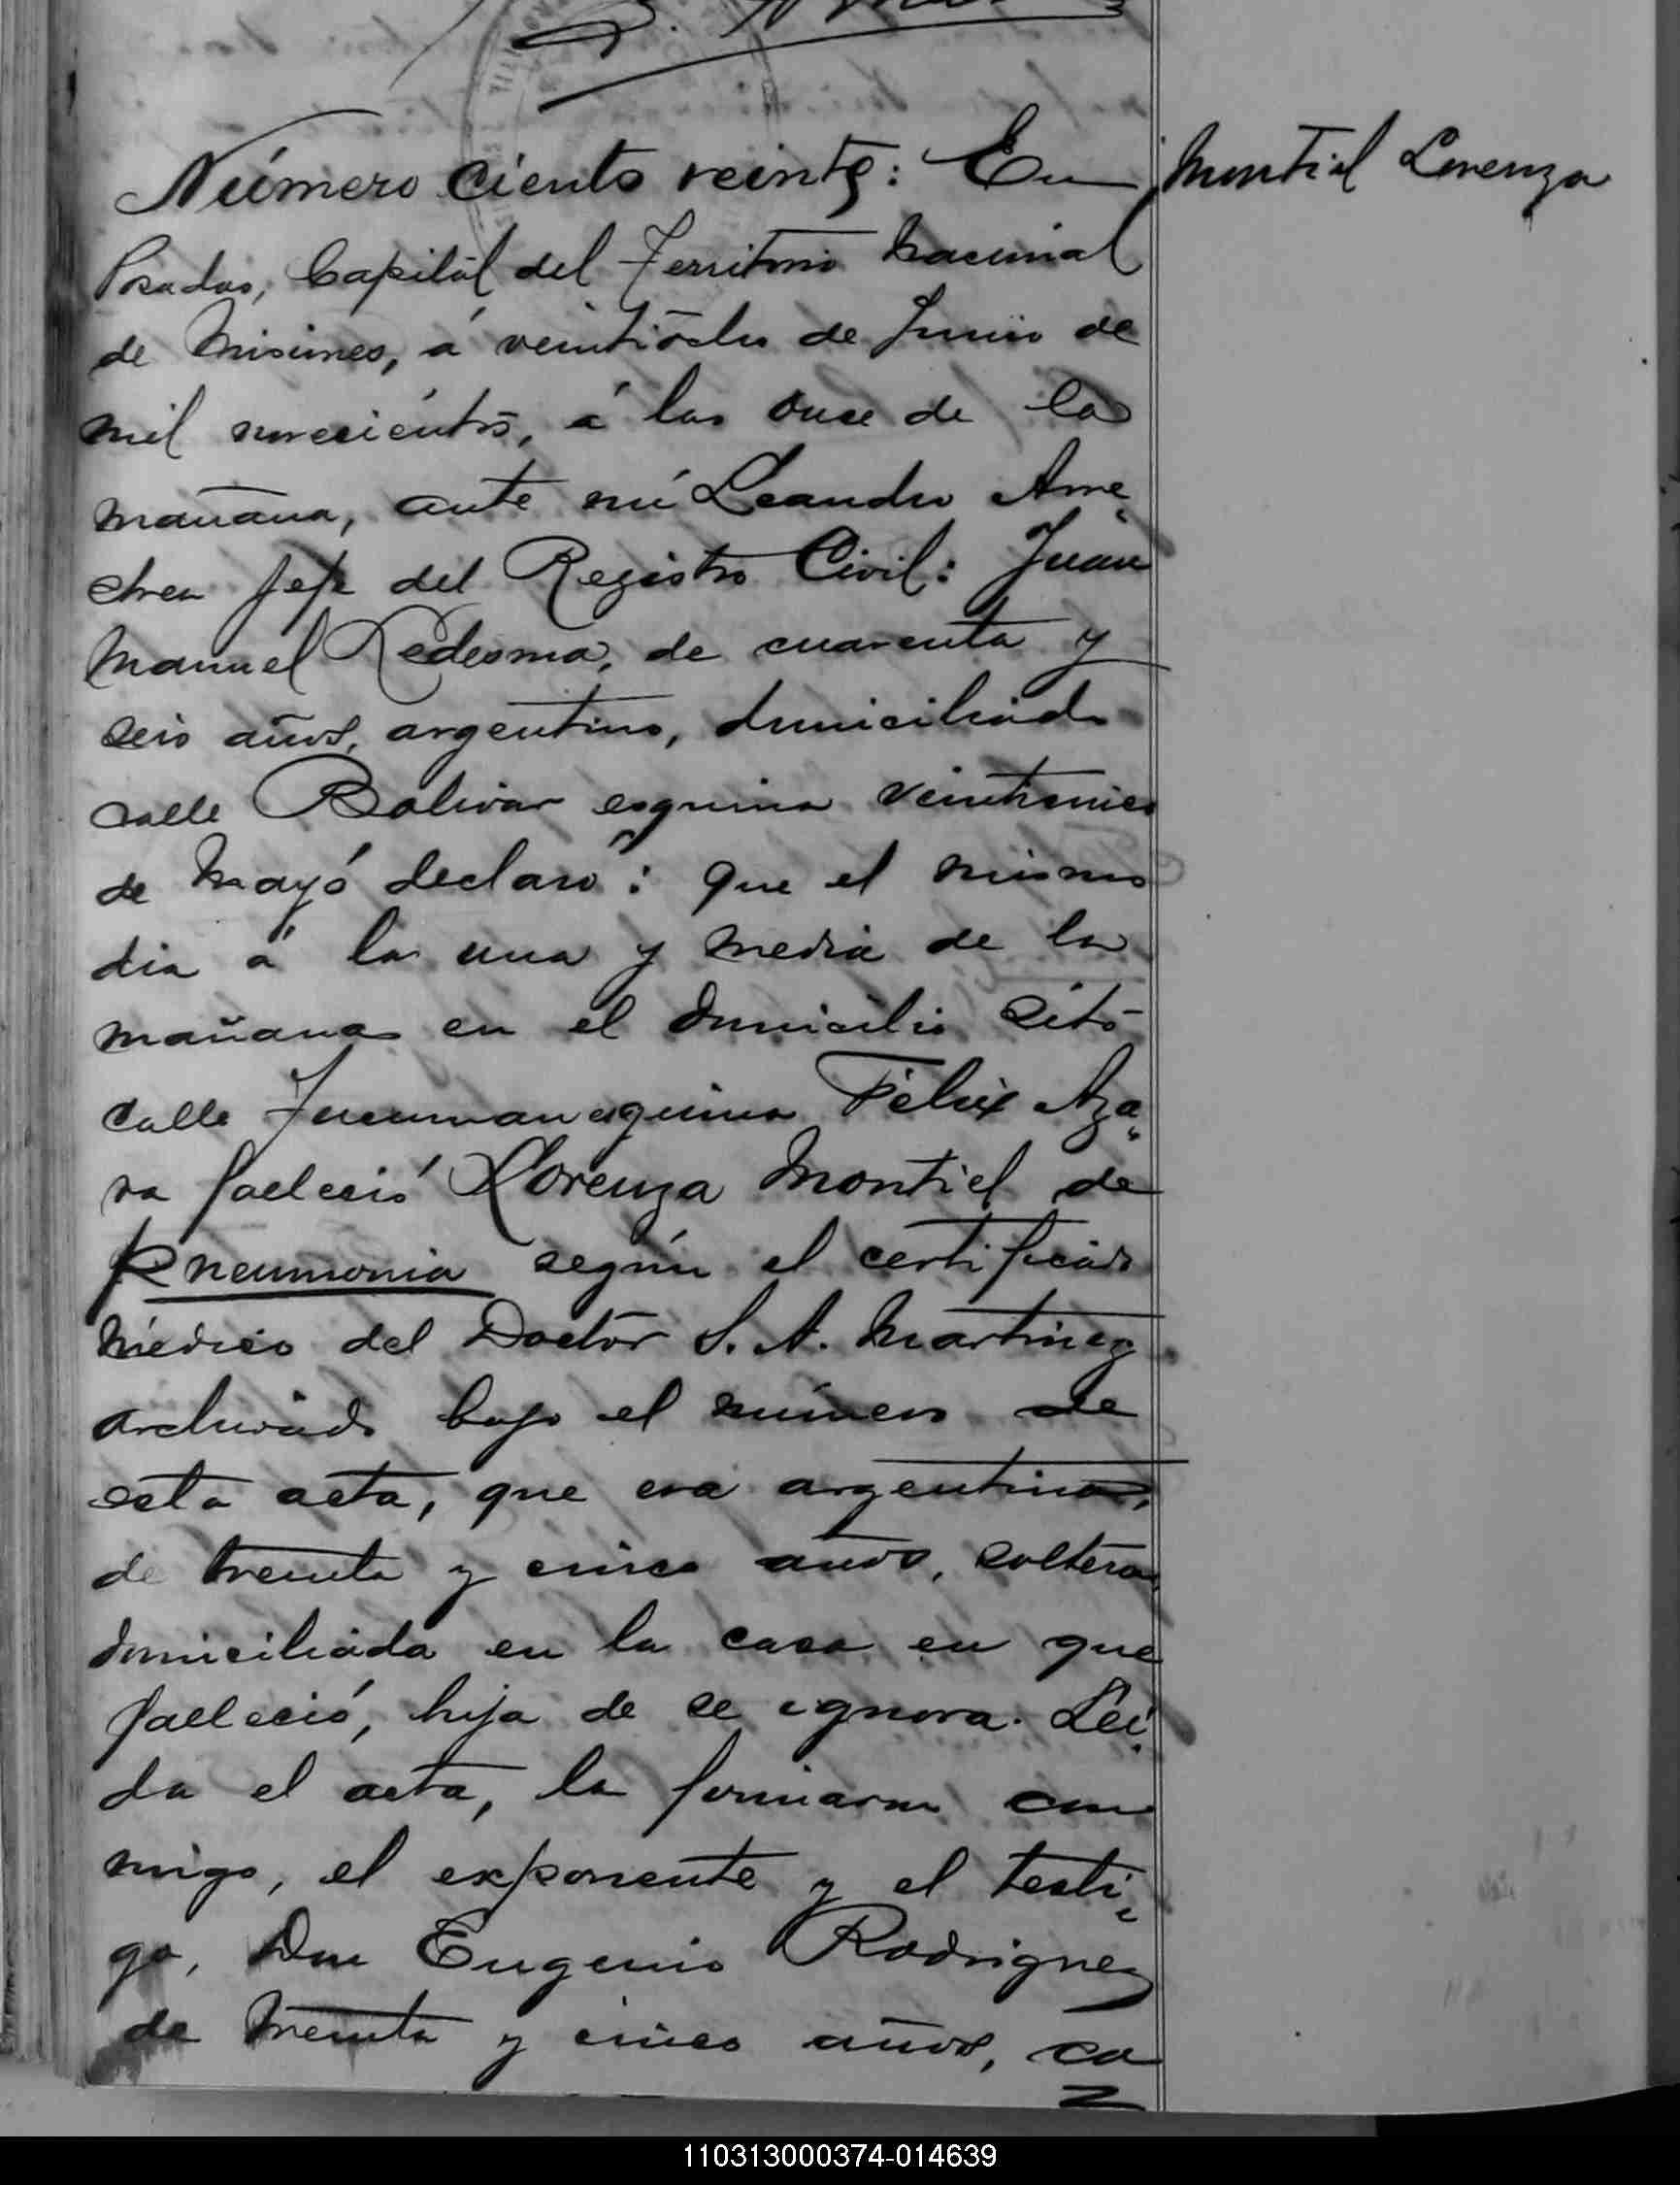 Número ciento veinte: En
Montiel Lorenza
Posadas, Capital del Territorio Nacional
de Misiones, á veintiocho de Junio de
mil novecientos, á las once de la
mañana, ante mí Leandro Ame-
chea Jefe del Registro Civil: Juan
Manuel Ledesma, de cuarenta y
seis años, argentino, domiciliado
calle Bolivar esquina veinticinco
de Mayo declaró: Que el mismo
dia á la una y media de la
mañana en el domicilio sito
calle Tucuman esquina Félix Aza-
ra falleció Lorenza Montiel de
Pneumonia según el certificado
médico del Doctor S. A. Martinez
archivado bajo el número de
esta acta, que era argentina,
de treinta y cinco años, soltera,
domiciliada en la casa en que
falleció, hija de se ignora. Lei-
da el acta, la firmaron con
migo, el exponente y el testi-
go, Don Eugenio Rodriguez
de treinta y cinco años, ca
110313000374-014639